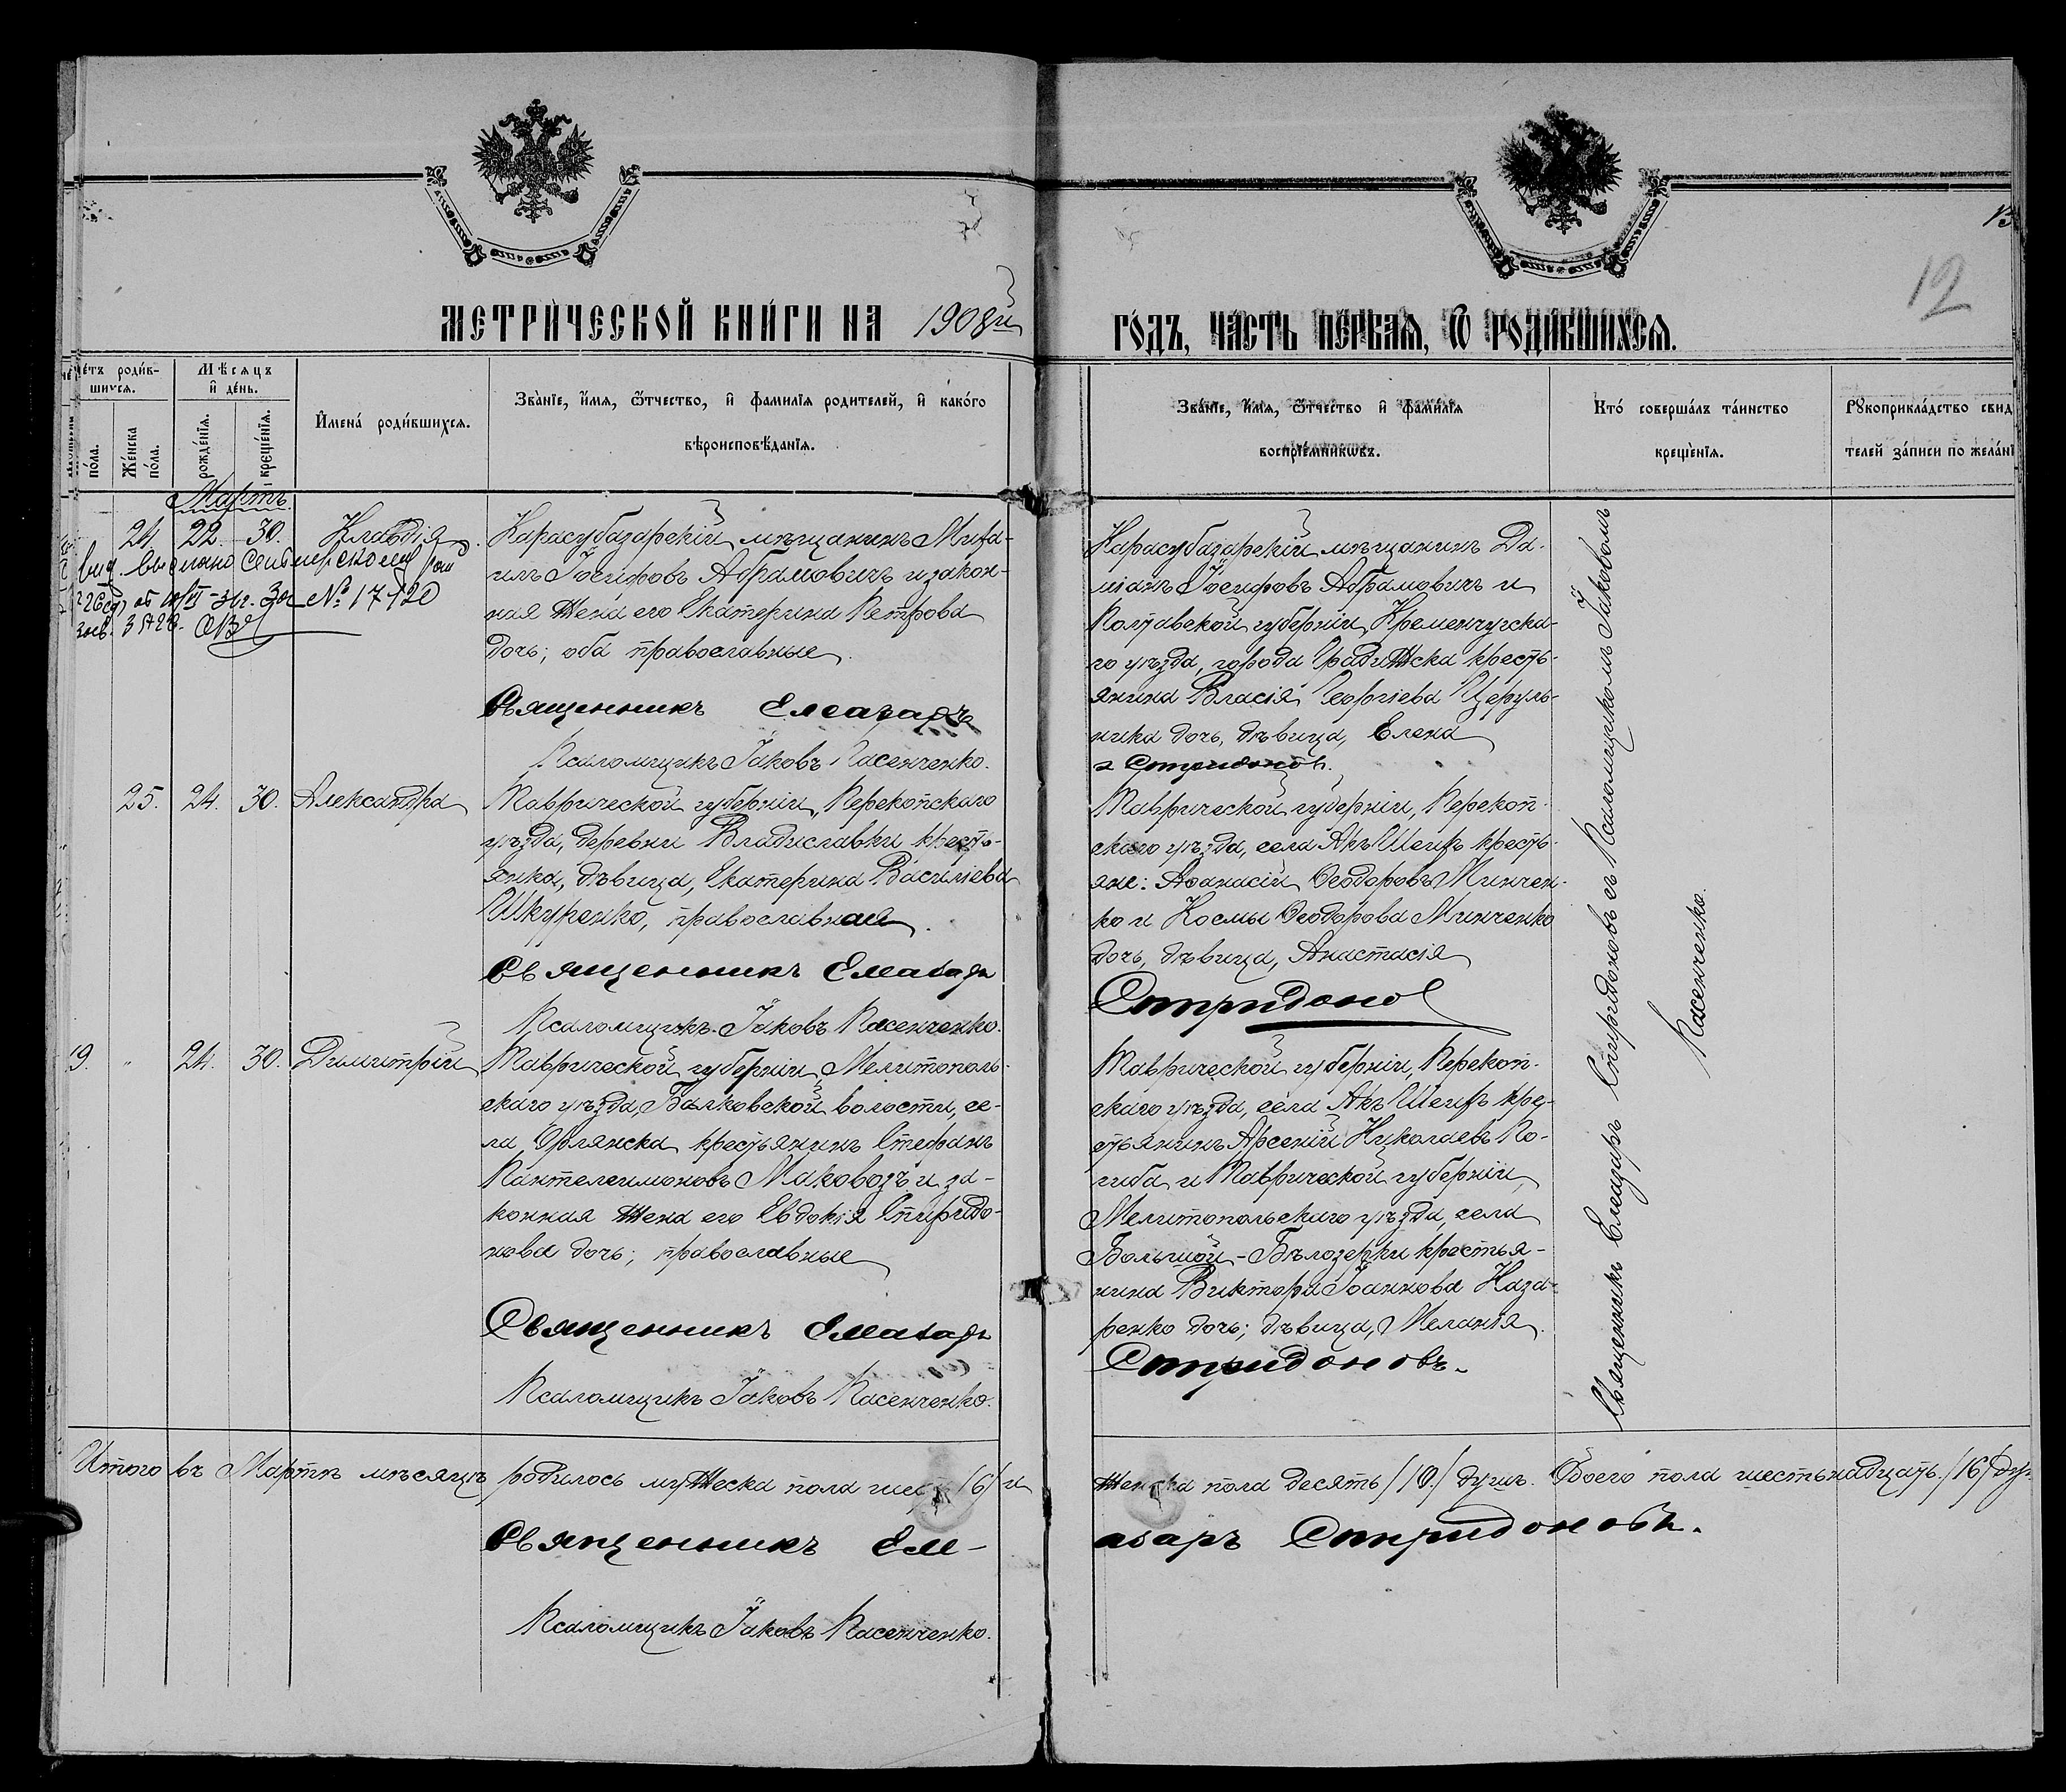 МЕТРИ́ЧЕСКОЙ КНИ́ГИ НА 1908й
ГО́ДЪ, ЧА́СТЬ ПЕ́РВАЯ, Ѡ РОДИ́ВШИХСЯ.
12
Мѣсяцъ
и де́нь.
Же́нска
по́ла.
рожде́нїя.
креще́нїя.
Имена́ роди́вшихся.
Зва́нїе, и́мя, ѿтчество, и фами́лїя родителей, и како́го
вѣроисповѣ́данїя.
Зва́нїе, и́мя, ѿтчество и фами́лїя
воспрїе́мникѡвъ.
Кто́ соверша́лъ та́инство
креще́нїя.
Рꙋкоприкла́дство свид
телей за́писи по жела́нї
Мартъ.
24. 22. 30. Клавдія.
Карасубазарскій мѣщанинъ Миха-
илъ Іосифовъ Абрамовичъ и закон-
ная жена его Екатерина Петрова
дочь; оба православные.
Священникъ Елеазаръ
Псаломщикъ Іаковъ Пасенченко.
№ 17120
Карасубазарскій мѣщанинъ Да-
міанъ Іосифовъ Абрамовичъ и
Полтавской губерніи, Кременчугска-
го уѣзда, города Градижска кресть-
янина Власія Георгіева Церуль-
ника дочь, дѣвица, Елена
Спиридоновъ.
25. 24. 30. Александра
Таврической губерніи, Перекопскаго
уѣзда, деревни Владиславки кресть-
янка, дѣвица, Екатерина Василіева
Шкуренко, православная.
Священникъ Елеазаръ
Псаломщикъ Іаковъ Пасенченко.
Таврической губерніи, Перекоп-
скаго уѣзда, села Акъ Шеихъ кресть-
яне: Аѳанасій Ѳеодоровъ Минчен-
ко и Космы Ѳеодорова Минченко
дочь, дѣвица, Анастасія
Спиридонов
9. " 24. 30. Димитрій
Таврической губерніи, Мелитополь-
скаго уѣзда, Балковской волости, се-
ла Орлянска крестьянинъ Стефанъ
Пантелеимоновъ Маковозъ и за-
конная жена его Евдокія Спиридо-
нова дочь; православные
Священникъ Елеазаръ
Псаломщикъ Іаковъ Пасенченко.
Таврической губерніи, Перекоп-
скаго уѣзда, села Акъ Шеихъ кре-
стьянинъ Арсеній Николаевъ По-
гиба и Таврической губерніи,
Мелитопольскаго уѣзда, села
Большой-Бѣлозерки крестья-
нина Виктора Іоаннова Наза-
ренко дочь; дѣвица, Меланія.
Спиридоновъ.
Священникъ Елеазаръ Спиридоновъ съ Псаломщикомъ Іаковомъ
Пасенченко.
Итого въ Мартѣ мѣсяцѣ родилось мужеска пола шесть /6/ и женска пола десять /10/ душъ. Обоего пола шестьнадцать /16/ душ.
Священникъ Елеазаръ Спиридоновъ.
Псаломщикъ Іаковъ Пасенченко.